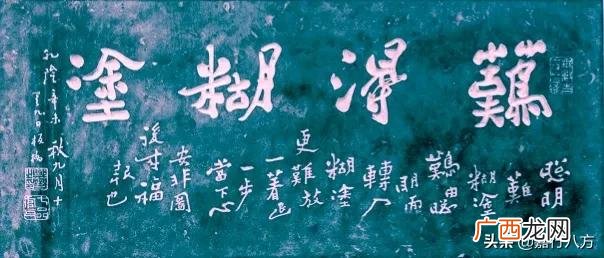 難得糊塗
聰明
難
糊塗
難由聰
明而
轉入
糊塗
更難放
一着退
一步
當下心
安非圖
後来福
報也
乾隆辛未秋九月十
有九日板橋
广西龙网
头条 @嘉行八方